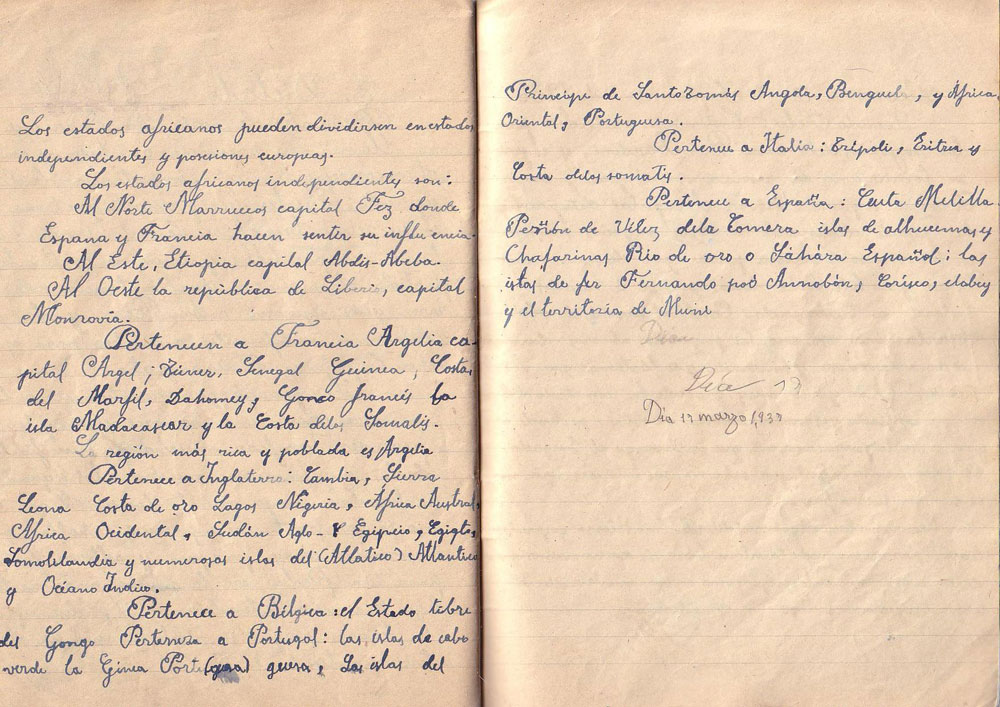 Los estados africanos pueden dividirsen en estados
independientes y posesiones europeas.
Los estados africanos independientes son:
Al Norte Marruecos capital Fez donde
España y Francia hacen sentir su influencia.
Al Este, Etiopia capital Abdis-Abeba.
Al Oeste la repùblica de Liberia, capital
Monrovia.
Pertenecen a Francia Argelia ca-
pital Argel; Túnez, Senegal Guinea, Costas
del Marfil, Dahomey, Gongo francés la
isla Madacascar y la Costa delos Somalis.
La región más rica y poblada es Argelia
Pertenece a Inglaterra: Cambia, Sierra
Leona Costa de oro Lagos Nigeria, África Austral,
Africa Ocidental, Sudán Aglo-Egipcio, Egigto,
Somolilandia y numerosas islas del (Atlatico) Atlantico
y Océano Indico.
Pertenece a Bélgica: el Estado libre
del Gongo Perteneza a Portugal: las islas de cabo
verde la Ginea Porte(gesa) guesa, Las islas del
Principe de Santo tomás Angola, Benguela, y África
Oriental, Portuguesa.
Pertenece a Italia: Trípoli, Eritrea y
Costa delos somatis.
Pertenece a España: Ceuta Melilla.
Peñón de Vélez dela Gomera islas de alhucemas y
Chafarinas Río de oro o Sáhára Español; las
islas de fer Fernando poó Annobón, Corisco, elobey
y el territorio de Muni
Día 17
Día 17 marzo 1,937